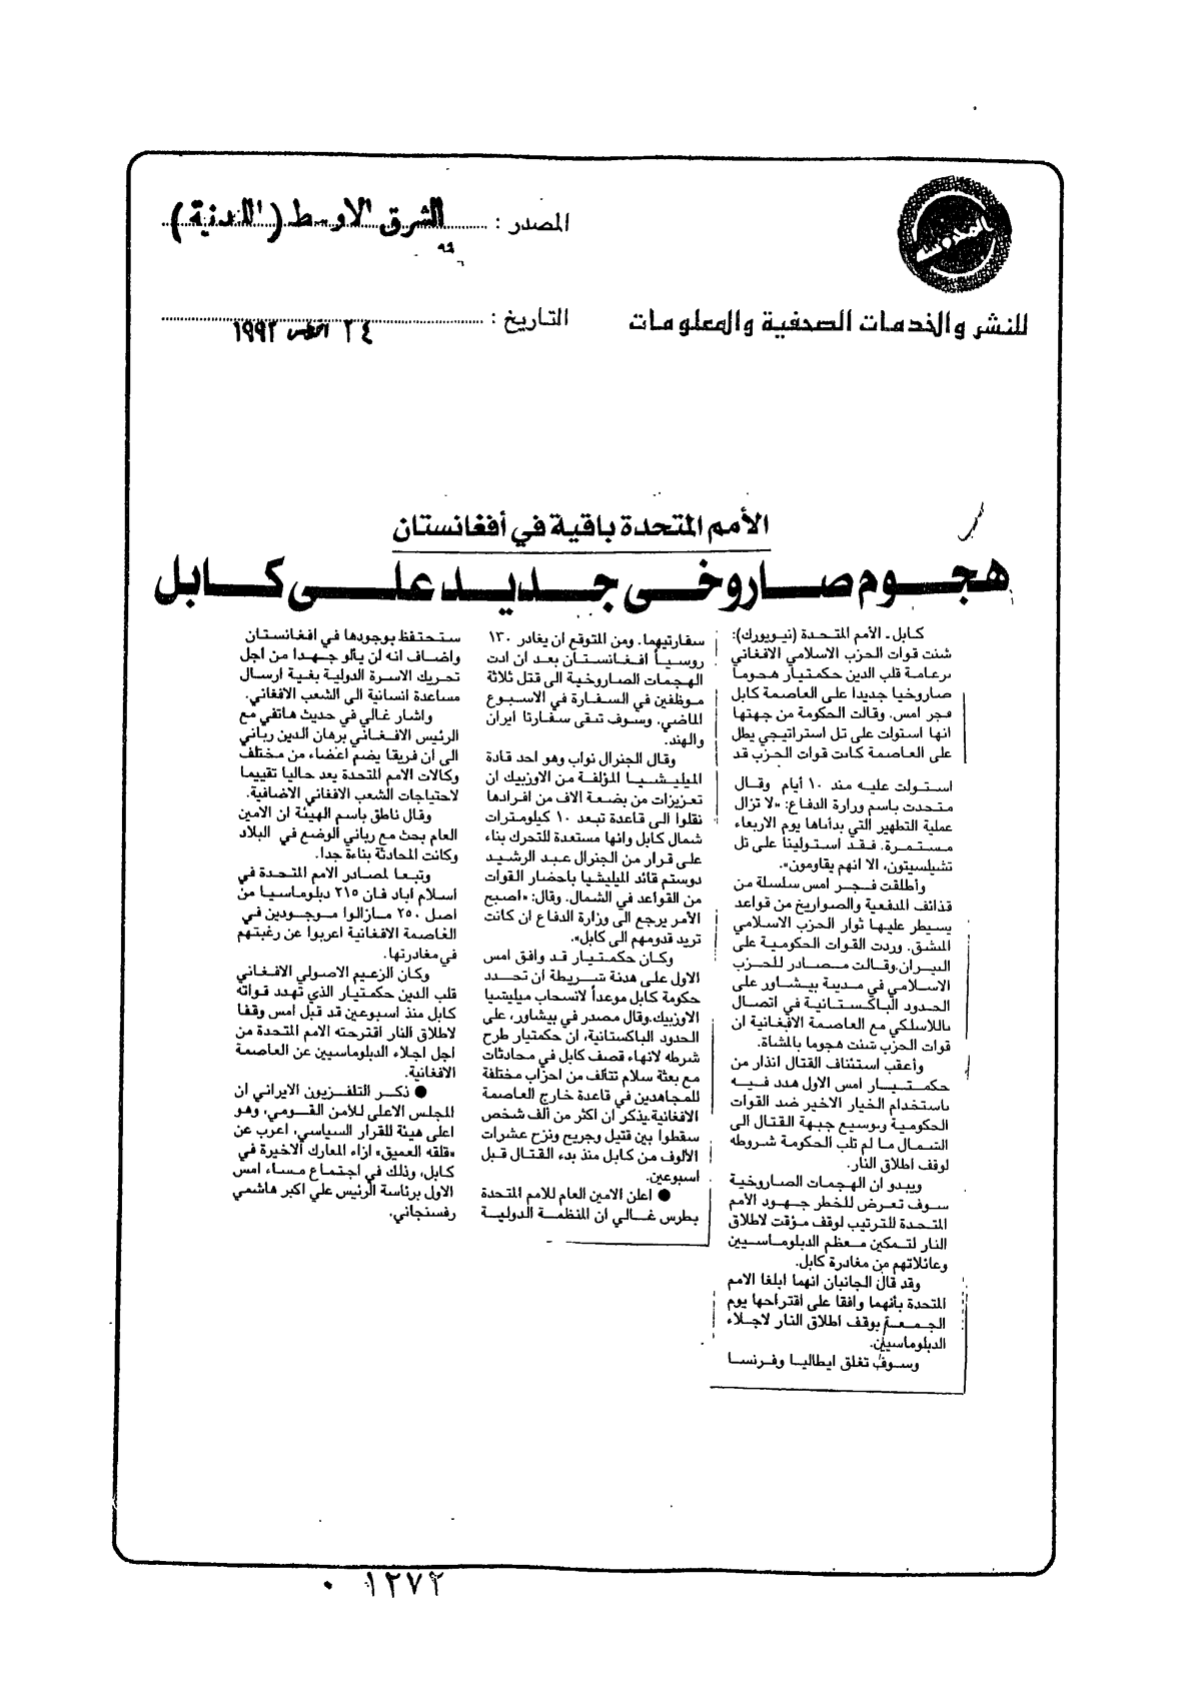 المصدر : الشرق الاوسط (اللندنية)
التاريخ : ٢٤ اغسطس ١٩٩٢
للنشر والخدمات الصحفية والمعلومات
الأمم المتحدة باقية في أفغانستان
هجوم صاروخي جديد على كابل
كابل ـ الأمم المتحدة (نيويورك):
شنت قوات الحزب الاسلامي الافغاني
بزعامة قلب الدين حكمتيار هجوما
صاروخيا جديدا على العاصمة كابل
فجر امس. وقالت الحكومة من جهتها
انها استولت على تل استراتيجي يطل
على العاصمة كانت قوات الحزب قد
استولت عليه منذ ١٠ أيام وقال
متحدث باسم وزارة الدفاع: «لا تزال
عملية التطهير التي بدأناها يوم الاربعاء
مستمرة. فقد استولينا على تل
تشيلسيتون، الا انهم يقاومون».
وأطلقت فجر امس سلسلة من
قذائف المدفعية والصواريخ من قواعد
يسيطر عليها ثوار الحزب الاسلامي
المنشق. وردت القوات الحكومية على
النيران.وقالت مصادر للحزب
الاسلامي في مدينة بيشاور على
الحدود الباكستانية في اتصال
باللاسلكي مع العاصمة الافغانية ان
قوات الحزب شنت هجوما بالمشاة.
وأعقب استئناف القتال انذار من
حكمتيار امس الاول هدد فيه
باستخدام الخيار الاخير ضد القوات
الحكومية وبوسيع جبهة القتال الى
الشمال ما لم تلب الحكومة شروطه
لوقف اطلاق النار.
ويبدو ان الهجمات الصاروخية
سوف تعرض للخطر جهود الأمم
المتحدة للترتيب لوقف مؤقت لاطلاق
النار لتمكين معظم الدبلوماسيين
وعائلاتهم من مغادرة كابل.
وقد قال الجانبان انهما ابلغا الامم
المتحدة بأنهما وافقا على اقتراحها يوم
الجمعة بوقف اطلاق النار لاجلاء
الدبلوماسيين.
وسوف تغلق ايطاليا وفرنسا
سفارتيهما. ومن المتوقع ان يغادر ١٣٠
روسيا افغانستان بعد ان ادت
الهجمات الصاروخية الى قتل ثلاثة
موظفين في السفارة في الاسبوع
الماضي. وسوف تبقى سفارتا ايران
والهند.
وقال الجنرال نواب وهو احد قادة
الميليشيا المؤلفة من الاوزبيك ان
تعزيزات من بضعة الاف من افرادها
نقلوا الى قاعدة تبعد ١٠ كيلومترات
شمال كابل وانها مستعدة للتحرك بناء
على قرار من الجنرال عبد الرشيد
دوستم قائد الميليشيا باحضار القوات
من القواعد في الشمال. وقال: «اصبح
الأمر يرجع الى وزارة الدفاع ان كانت
تريد قدومهم الى كابل».
وكان حكمتيار قد وافق امس
الاول على هدنة شريطة ان تحدد
حكومة كابل موعداً لانسحاب ميليشيا
الاوزبيك.وقال مصدر في بيشاور، على
الحدود الباكستانية، ان حكمتيار طرح
شرطه لانهاء قصف كابل في محادثات
مع بعثة سلام تتألف من احزاب مختلفة
للمجاهدين في قاعدة خارج العاصمة
الافغانية.يذكر ان اكثر من ألف شخص
سقطوا بين قتيل وجريح ونزح عشرات
الألوف من كابل منذ بدء القتال قبل
اسبوعين.
● اعلن الامين العام للامم المتحدة
بطرس غالي ان المنظمة الدولية
ستحتفظ بوجودها في افغانستان
واضاف انه لن يألو جهدا من اجل
تحريك الاسرة الدولية بغية ارسال
مساعدة انسانية الى الشعب الافغاني.
واشار غالي في حديث هاتفي مع
الرئيس الافغاني برهان الدين رباني
الى ان فريقا يضم اعضاء من مختلف
وكالات الامم المتحدة يعد حاليا تقييما
لاحتياجات الشعب الافغاني الاضافية.
وقال ناطق باسم الهيئة ان الامين
العام بحث مع رباني الوضع في البلاد
وكانت المحادثة بناءة جدا.
وتبعا لمصادر الامم المتحدة في
اسلام اباد فان ٢١٥ دبلوماسيا من
اصل ٢٥٠ مازالوا موجودين في
العاصمة الافغانية اعربوا عن رغبتهم
في مغادرتها.
وكان الزعيم الاصولي الافغاني
قلب الدين حكمتيار الذي تهدد قواته
كابل منذ اسبوعين قد قبل امس وقفا
لاطلاق النار اقترحته الامم المتحدة من
اجل اجلاء الدبلوماسيين عن العاصمة
الافغانية.
● ذكر التلفزيون الايراني ان
المجلس الاعلى للأمن القومي، وهو
اعلى هيئة للقرار السياسي، اعرب عن
«قلقه العميق» ازاء المعارك الاخيرة في
كابل، وذلك في اجتماع مساء امس
الاول برئاسة الرئيس علي اكبر هاشمي
رفسنجاني.
٠١٢٧٢